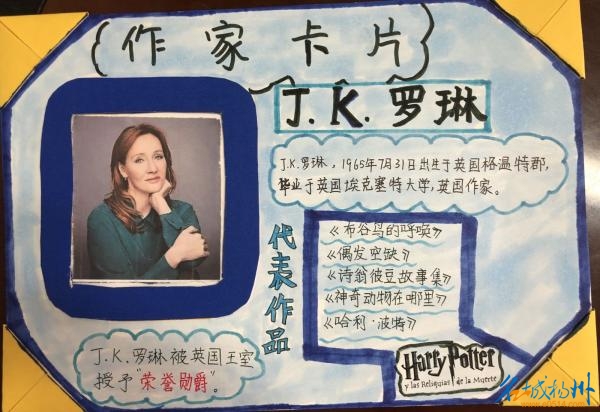 作家卡片
J.K.罗琳
J.K.罗琳，1965年7月31日出生于英国格温特郡，
毕业于英国埃克塞特大学，英国作家。
代表作品
《布谷鸟的呼唤》
《偶发空缺》
《诗翁彼豆故事集》
《神奇动物在哪里》
《哈利·波特》
J.K.罗琳被英国王室
授予“荣誉勋爵”。
Harry Potter
y las Reliquias de la Muerte